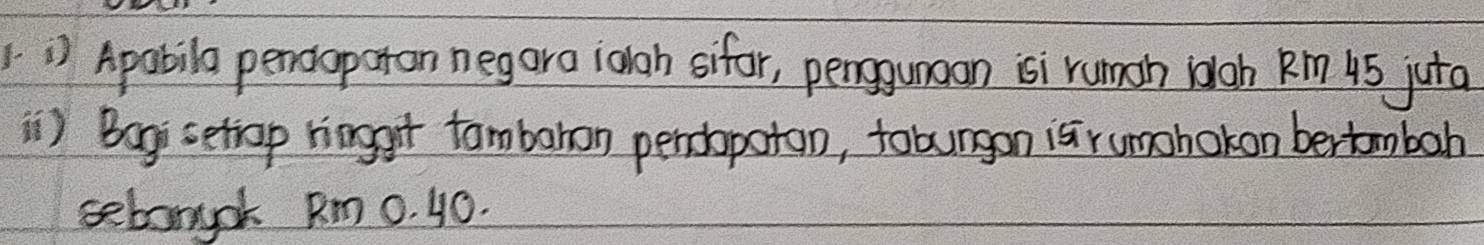 1. i) Apabila pendapatan negara ialah sifar, penggunaan isi rumah ialah RM 45 juta
ii) Bagi setiap ringgit tambahan pendapatan, tabungan isi rumah akan bertambah
sebanyak RM 0.40.